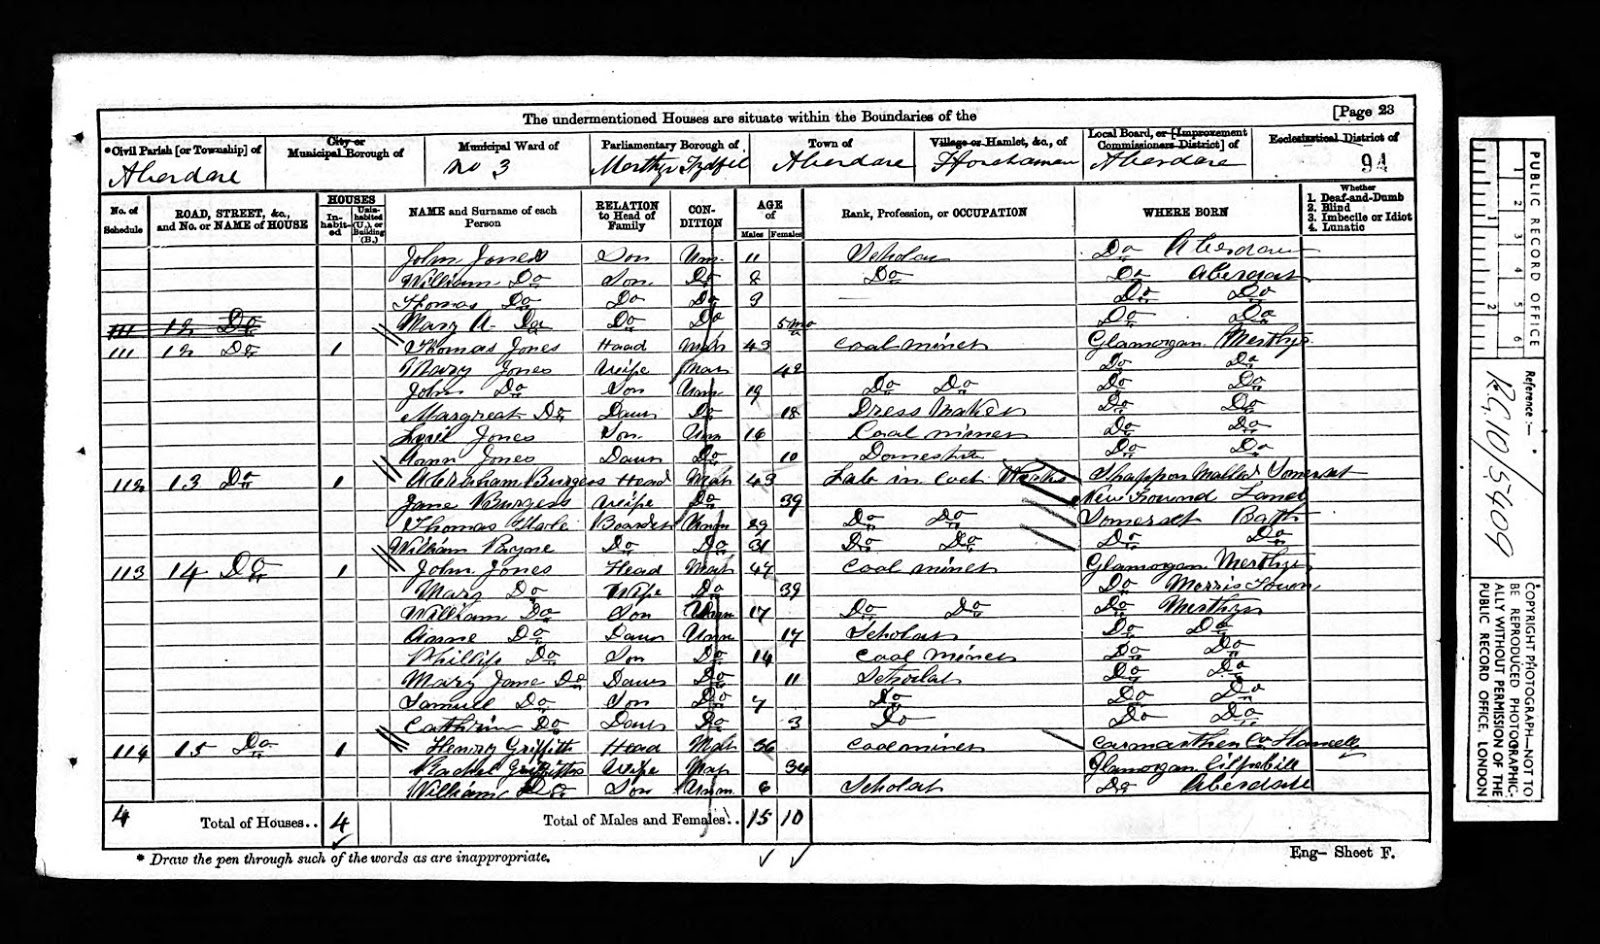 The undermentioned Houses are situate within the Boundaries of the [Page 23
*Civil Parish [or Township] of City or Municipal Borough of Municipal Ward of Parliamentary Borough of Town of Village or Hamlet, &c., of Local Board, or [Improvement Commissioners District] of Ecclesiastical District of
Aberdare No 3 Merthyr Tydfil Aberdare Aberdare 94
No. of Schedule ROAD, STREET, &c., and No. or NAME of HOUSE HOUSES Inhabited Uninhabited (U.), or Building (B.) NAME and Surname of each Person RELATION to Head of Family CONDITION AGE of Males Females Rank, Profession, or OCCUPATION WHERE BORN Whether 1. Deaf-and-Dumb 2. Blind 3. Imbecile or Idiot 4. Lunatic
John Jones Son Unm 11 Scholar Do Aberdare
William Do Son Do 8 Do Do Aberdare
Thomas Do Do Do 3 Do Do
111 12 Do Mary A. Do Do Do 5 mo Do Do
111 12 Do 1 Thomas Jones Head Mar 43 Coal miner Glamorgan Merthyr
Mary Jones Wife Mar 42 Do Do
John Do Son Unm 19 Do Do Do Do
Margreat Do Daur Do 18 Dress Maker Do Do
Jones Son Unm 16 Coal miner Do Do
Ann Jones Daur Do 10 Do Do
112 13 Do 1 Aberaham Burgess Head Mar 43 Lab in Works Somerset
Jane Burgess Wife Do 39 New Found Land
Thomas Boarder Unm 29 Do Do Somerset Bath
William Payne Do Do 31 Do Do Do Do
113 14 Do 1 John Jones Head Mar 47 Coal miner Glamorgan Merthyr
Mary Do Wife Do 39 Do Morris Town
William Do Son Unm 17 Do Do Do Merthyr
Do Daur Unm 17 Scholar Do Do
Phillip Do Son Do 14 Coal miner Do Do
Mary Jane Do Daur Do 11 Scholar Do Do
Samuel Do Son Do 7 Do Do Do
Cathrin Do Daur Do 3 Do Do Do
114 15 Do 1 Henry Griffith Head Mar 36 Coal miner Carmarthen Co
Rachel Griffiths Wife Mar 34 Glamorgan
William Do Son Unm 6 Scholar Do Aberdare
4 Total of Houses.. 4 Total of Males and Females.. 15 10
* Draw the pen through such of the words as are inappropriate. Eng— Sheet F.
PUBLIC RECORD OFFICE
1 2 3 4 5 6
1 2
Reference:—
RG 10/5409
COPYRIGHT PHOTOGRAPH—NOT TO
BE REPRODUCED PHOTOGRAPHIC-
ALLY WITHOUT PERMISSION OF THE
PUBLIC RECORD OFFICE, LONDON